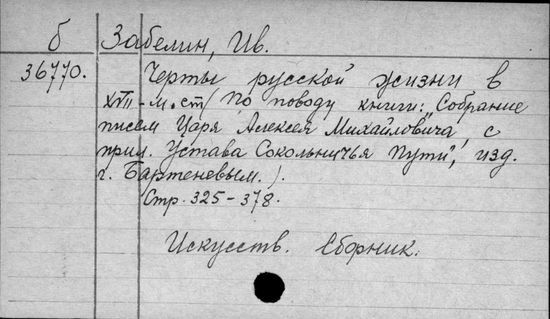 б Забелин, Ив.
36770. Черты русской жизни в
XVII-м. ст. (По поводу книги: „Собрание
писем Царя Алексея Михайловича с
прил. Устава Сокольничья Пути", изд.
г. Бартеневым.).
Стр. 325-378.
Искусств. Сборник.